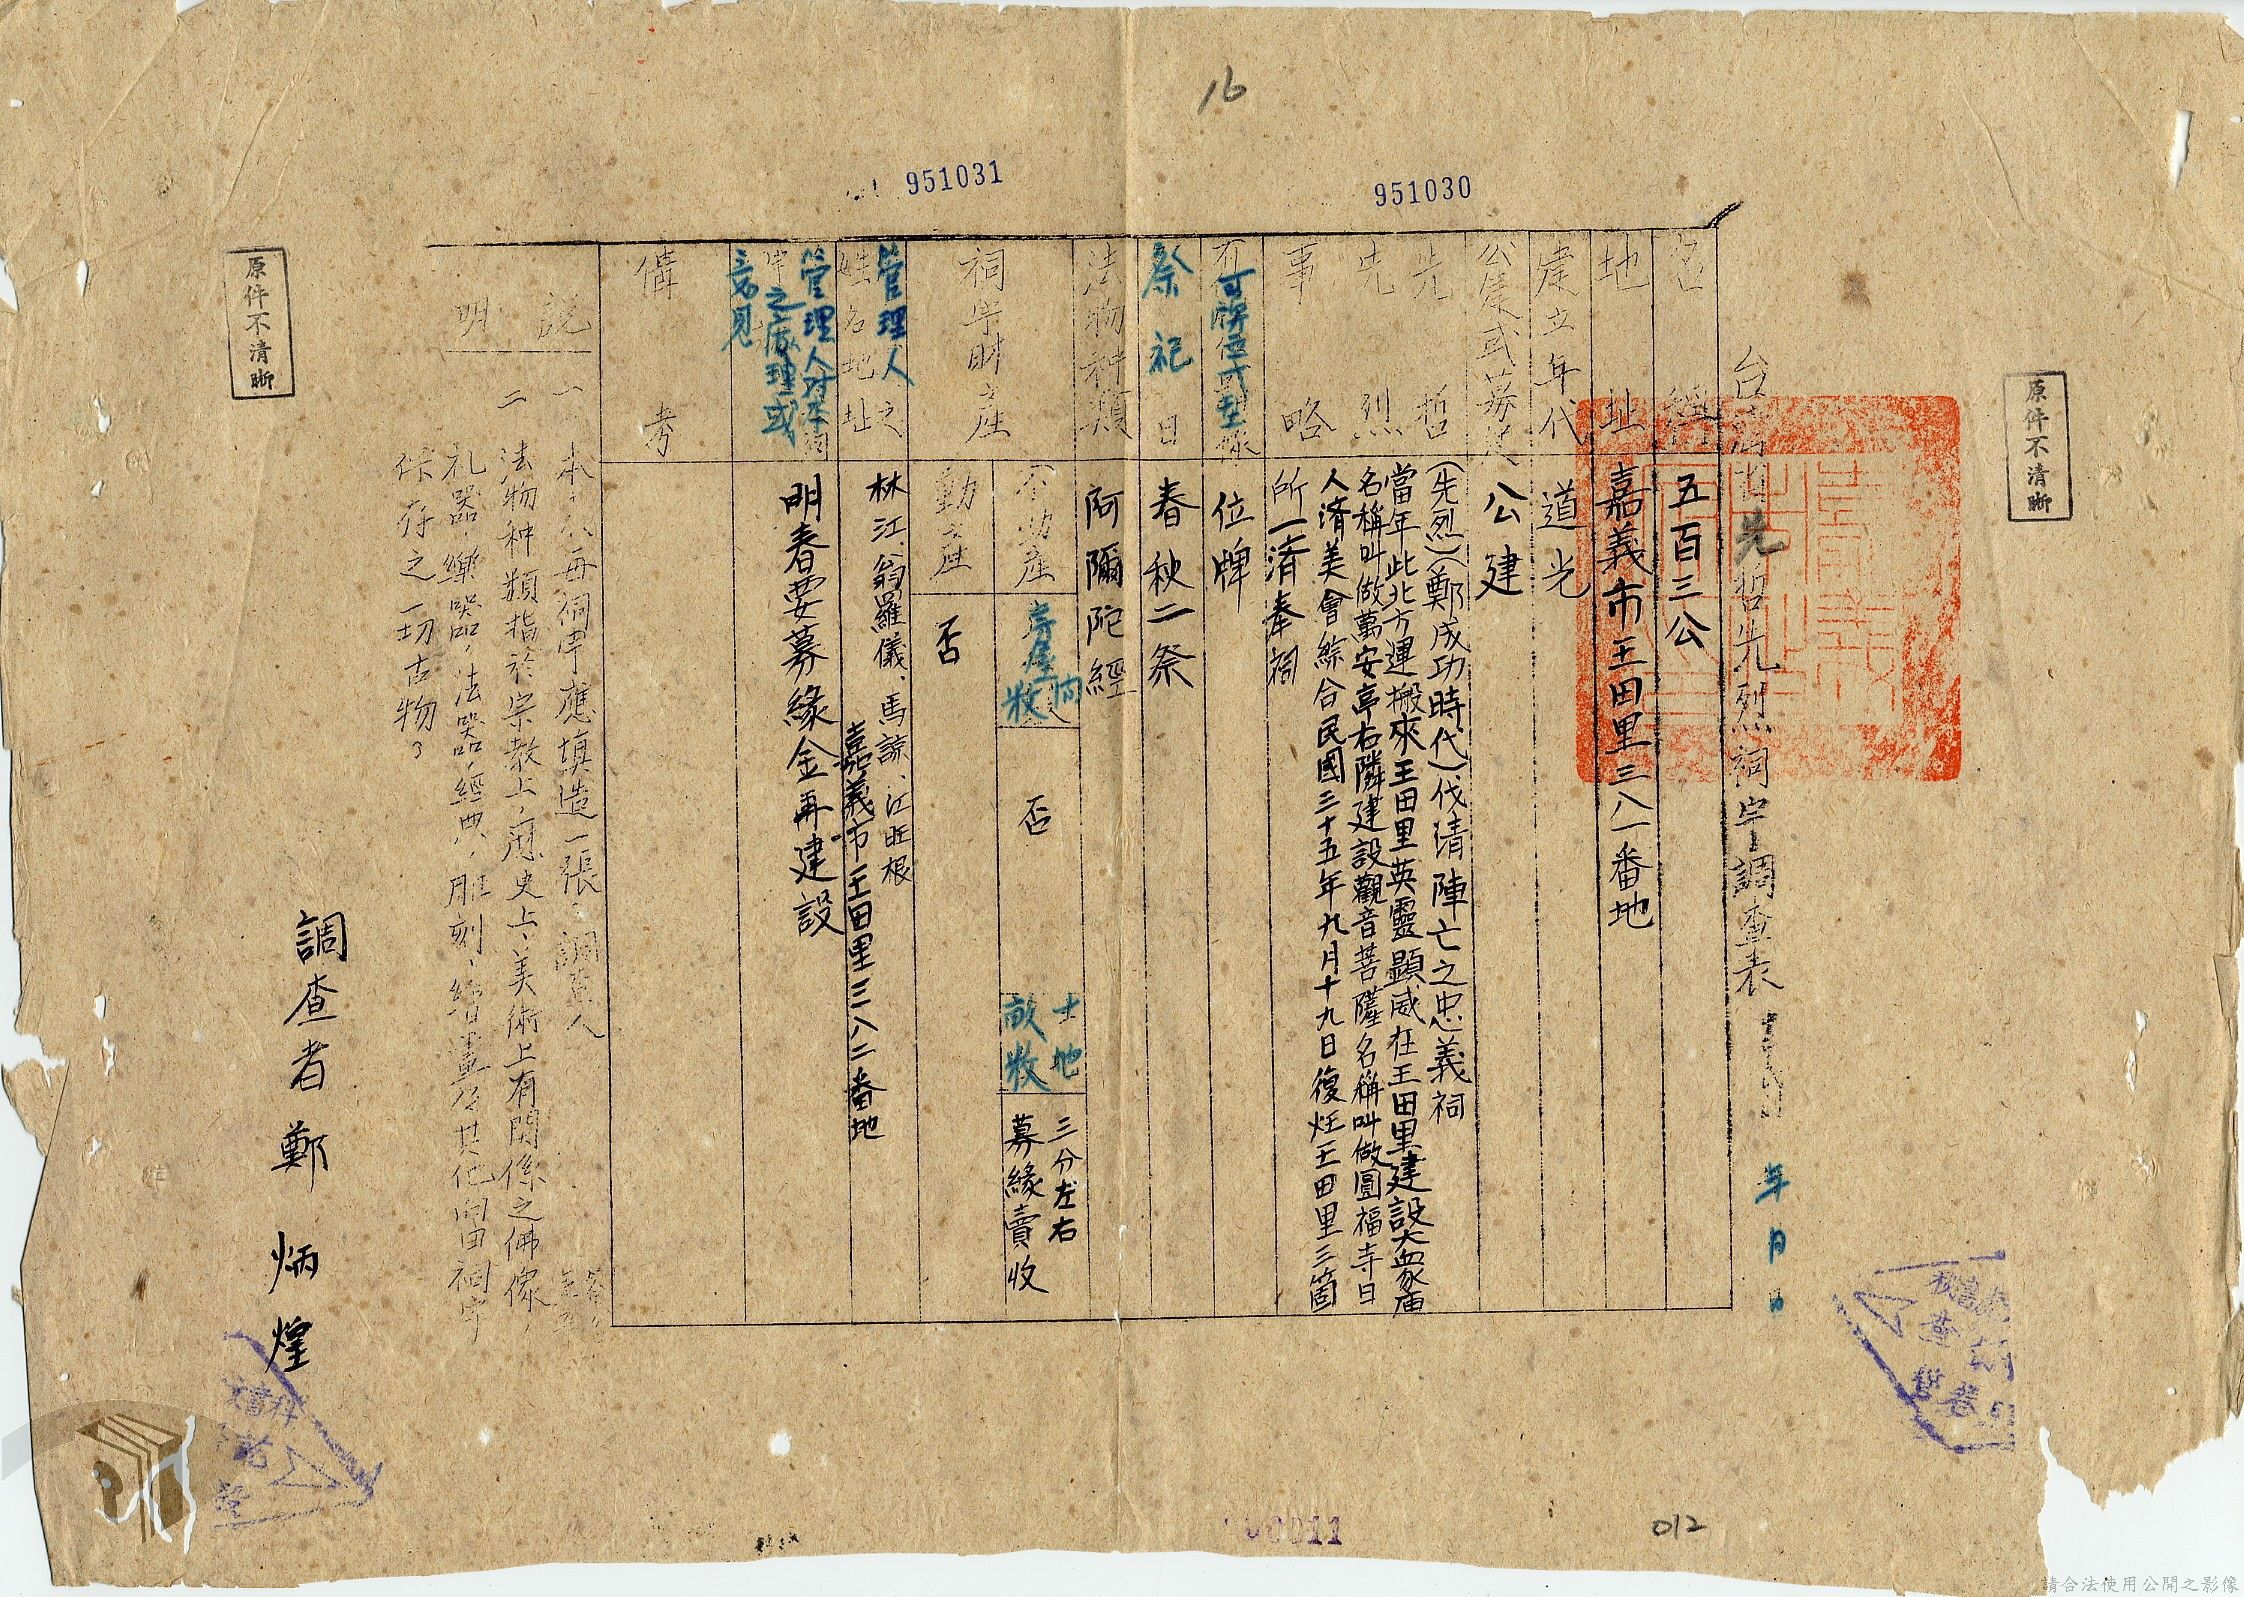 16
951030
951031
原件不清晰
原件不清晰
先哲先烈祠宇調查表
年月日
名稱
五百三公
地址
嘉義市王田里三八一番地
建立年代
道光
公建或募建
公建
先哲先烈事略
(先烈)(鄭成功時代)伐清陣亡之忠義祠
當年此北方運搬來王田里英靈顯威在王田里建設大衆庙
名稱叫做萬安亭右隣建設觀音菩薩名稱叫做圓福寺日
人濟美會綜合民國三十五年九月十九日復在王田里三箇
所一濟奉祠
位牌
祭祀日
春秋二祭
法物种類
阿彌陀經
祠宇財產
不動產
房屋
否
土地畝數
三分左右
募緣賣收
動產
否
管理人之姓名地址
林江、翁羅儀、馬諒、江旺根
嘉義市王田里三八二番地
管理人对本祠
之處理或
意見
明春要募緣金再建設
備考
說明
一、本表每祠宇應填造一張、調查人
二、法物种類指於宗教上,歷史上、美術上有関係之佛像,
礼器,樂器,法器,經典,雕刻、繪畫及其他向由祠宇
保存之一切古物。
調查者鄭炳煌
012
請合法使用公開之影像